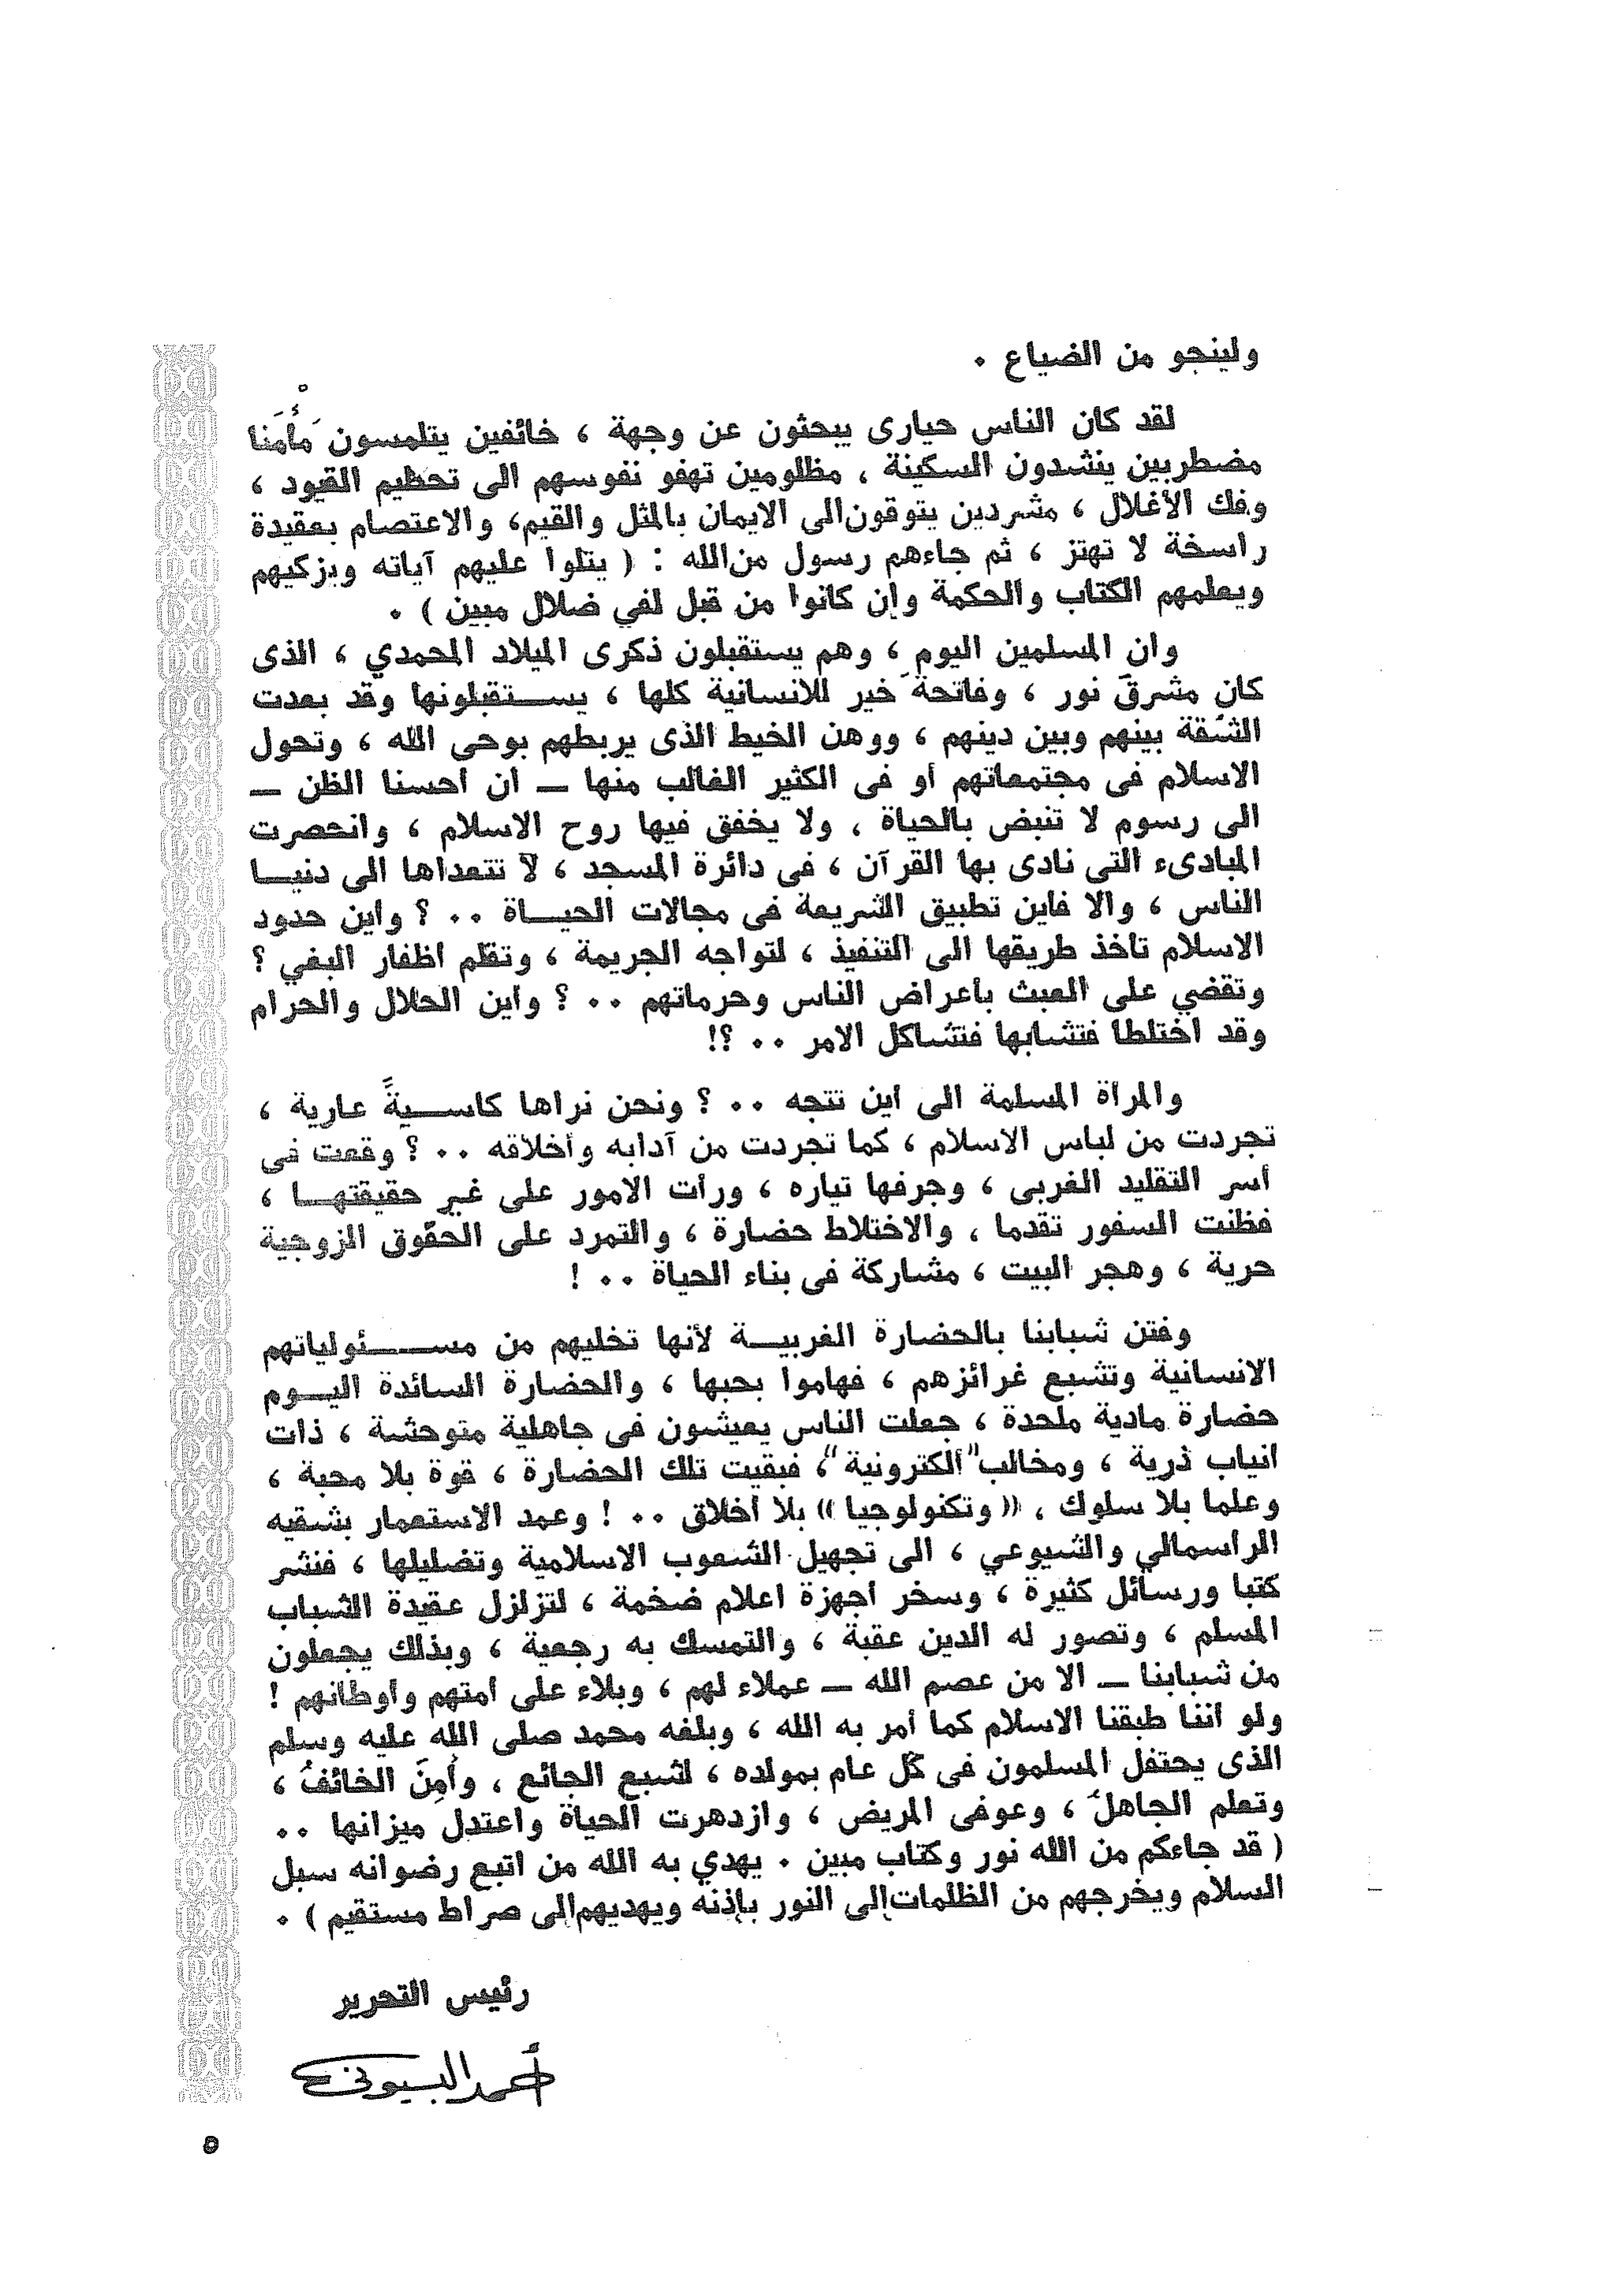 ولينجو من الضياع .
لقد كان الناس حيارى يبحثون عن وجهة ، خائفين يتلمسون مأمنا
مضطربين ينشدون السكينة ، مظلومين تهفو نفوسهم الى تحطيم القيود ،
وفك الأغلال ، مشردين يتوقون الى الايمان بالمثل والقيم، والاعتصام بعقيدة
راسخة لا تهتز ، ثم جاءهم رسول من الله : ( يتلوا عليهم آياته ويزكيهم
ويعلمهم الكتاب والحكمة وإن كانوا من قبل لفي ضلال مبين ) .
وان المسلمين اليوم ، وهم يستقبلون ذكرى الميلاد المحمدي ، الذى
كان مشرق نور ، وفاتحة خير للانسانية كلها ، يستقبلونها وقد بعدت
الشقة بينهم وبين دينهم ، ووهن الخيط الذى يربطهم بوحى الله ، وتحول
الاسلام فى مجتمعاتهم أو فى الكثير الغالب منها — ان احسنا الظن —
الى رسوم لا تنبض بالحياة ، ولا يخفق فيها روح الاسلام ، وانحصرت
المبادىء التى نادى بها القرآن ، فى دائرة المسجد ، لا تتعداها الى دنيا
الناس ، والا فاين تطبيق الشريعة فى مجالات الحياة .. ؟ واين حدود
الاسلام تأخذ طريقها الى التنفيذ ، لتواجه الجريمة ، وتقلم اظفار البغي ؟
وتقضي على العبث بأعراض الناس وحرماتهم .. ؟ وأين الحلال والحرام
وقد اختلطا فتشابها فتشاكل الامر .. ؟!
والمرأة المسلمة الى أين تتجه .. ؟ ونحن نراها كاسيةً عارية ،
تجردت من لباس الاسلام ، كما تجردت من آدابه وأخلاقه .. ؟ وقعت فى
أسر التقليد الغربى ، وجرفها تياره ، ورأت الامور على غير حقيقتها ،
فظنت السفور تقدما ، والاختلاط حضارة ، والتمرد على الحقوق الزوجية
حرية ، وهجر البيت ، مشاركة فى بناء الحياة .. !
وفتن شبابنا بالحضارة الغربية لأنها تخليهم من مسئولياتهم
الانسانية وتشبع غرائزهم ، فهاموا بحبها ، والحضارة السائدة اليوم
حضارة مادية ملحدة ، جعلت الناس يعيشون فى جاهلية متوحشة ، ذات
انياب ذرية ، ومخالب "ألكترونية" ، فبقيت تلك الحضارة ، قوة بلا محبة ،
وعلما بلا سلوك ، (( وتكنولوجيا )) بلا أخلاق .. ! وعمد الاستعمار بشقيه
الرأسمالي والشيوعي ، الى تجهيل الشعوب الاسلامية وتضليلها ، فنشر
كتبا ورسائل كثيرة ، وسخر اجهزة اعلام ضخمة ، لتزلزل عقيدة الشباب
المسلم ، وتصور له الدين عقبة ، والتمسك به رجعية ، وبذلك يجعلون
من شبابنا — الا من عصم الله — عملاء لهم ، وبلاء على أمتهم وأوطانهم !
ولو أننا طبقنا الاسلام كما أمر به الله ، وبلغه محمد صلى الله عليه وسلم
الذى يحتفل المسلمون فى كل عام بمولده ، لشبع الجائع ، وأمِنَ الخائفُ ،
وتعلم الجاهلُ ، وعوفى المريض ، وازدهرت الحياة واعتدل ميزانها ..
( قد جاءكم من الله نور وكتاب مبين . يهدي به الله من اتبع رضوانه سبل
السلام ويخرجهم من الظلمات إلى النور بإذنه ويهديهم إلى صراط مستقيم ) .
رئيس التحرير
أحمد البسيوني
٥